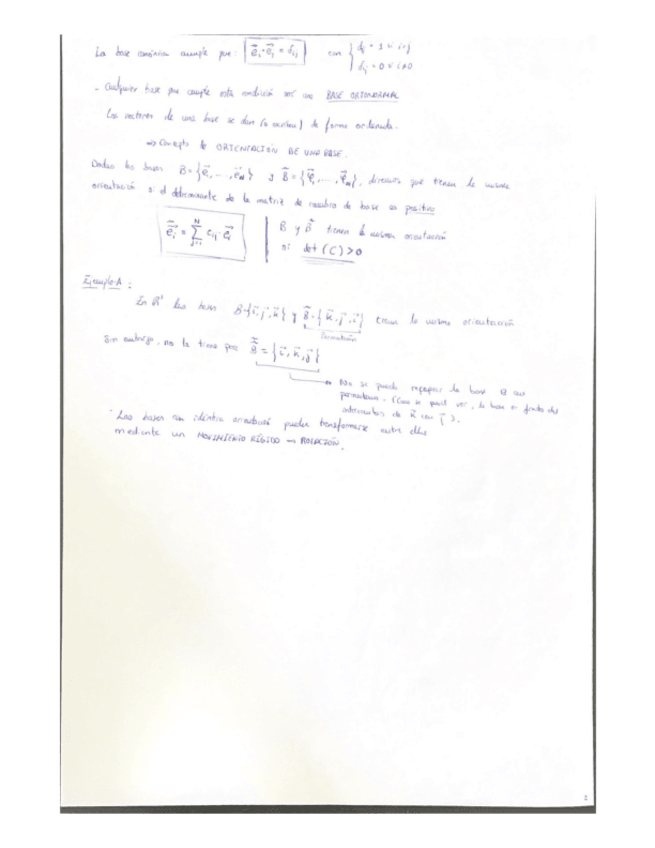 La base canónica cumple que: e⃗i · e⃗j = δij con { δij = 1 si i=j
δij = 0 si i≠j
- Cualquier base que cumple esta condición será una BASE ORTONORMAL
Los vectores de una base se dan (o escriben) de forma ordenada.
⇒ Concepto de ORIENTACIÓN DE UNA BASE.
Dadas las bases B = {e⃗1, ..., e⃗N} y B̃ = {e⃗1, ..., e⃗N}, diremos que tienen la misma
orientación si el determinante de la matriz de cambio de base es positivo
e⃗i = Σ cij · e⃗i B y B̃ tienen la misma orientación
si det (C) > 0
Ejemplo A:
En las bases B = {i⃗, j⃗, k⃗} y B̃ = {k⃗, j⃗, i⃗} tienen la misma orientación
Permutación
Sin embargo, no la tiene que B̃ = {i⃗, k⃗, j⃗}
No se puede la base B
permutando. (Como se puede ver, la base es fruto del
intercambio de k⃗ con j⃗).
Las bases con idéntica orientación pueden transformarse entre ellas
mediante un MOVIMIENTO RÍGIDO ⇒ ROTACIÓN.
2